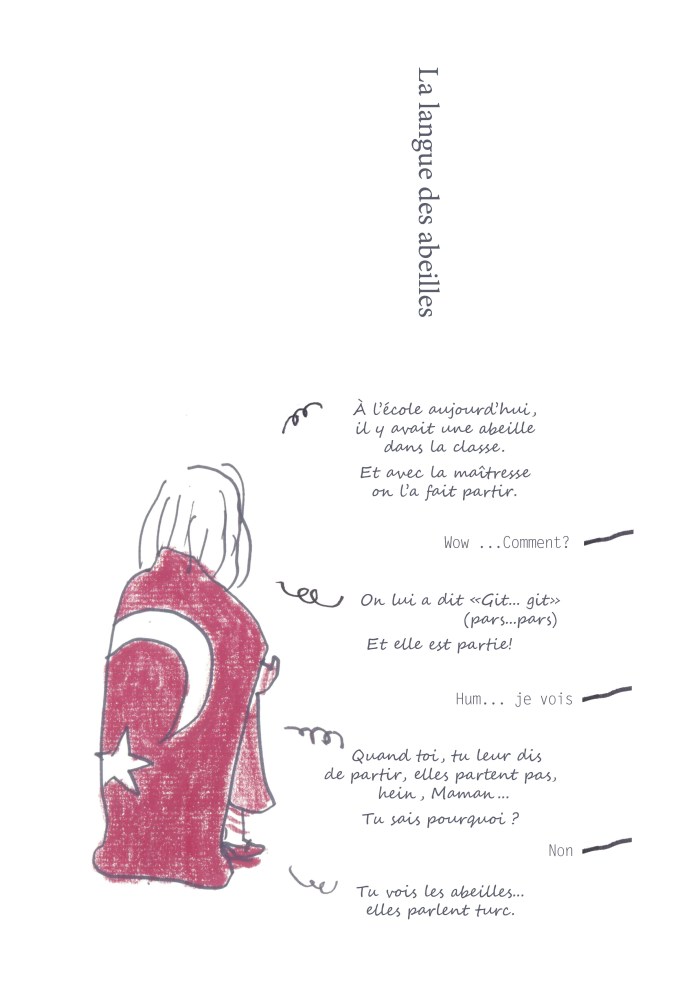 La langue des abeilles
À l'école aujourd'hui,
il y avait une abeille
dans la classe.
Et avec la maîtresse
on l'a fait partir.
Wow ...Comment?
On lui a dit «Git... git»
(pars...pars)
Et elle est partie!
Hum... je vois
Quand toi, tu leur dis
de partir, elles partent pas,
hein, Maman...
Tu sais pourquoi ?
Non
Tu vois les abeilles...
elles parlent turc.